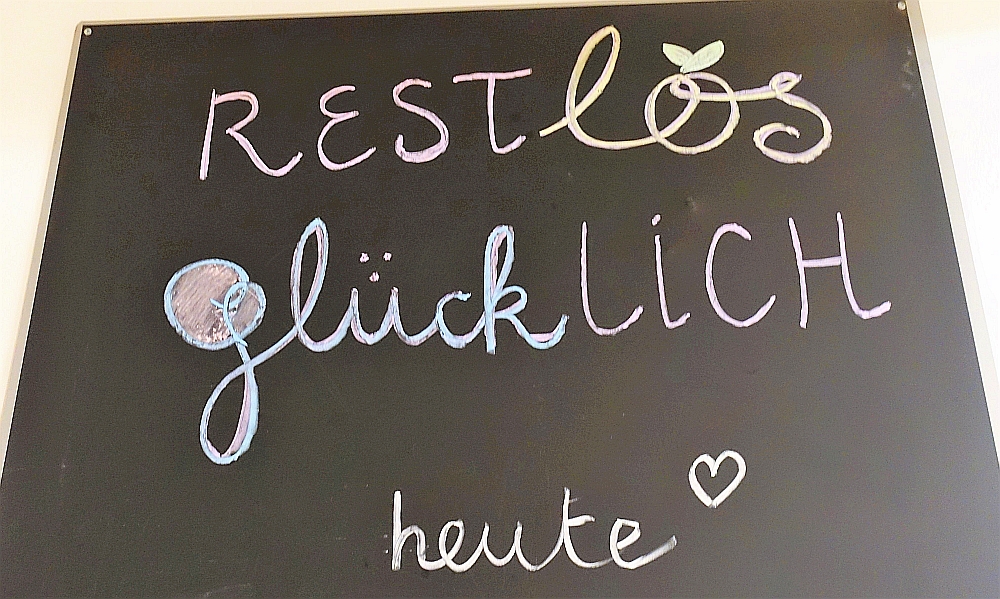 RESTlos
glückLiCH
heute